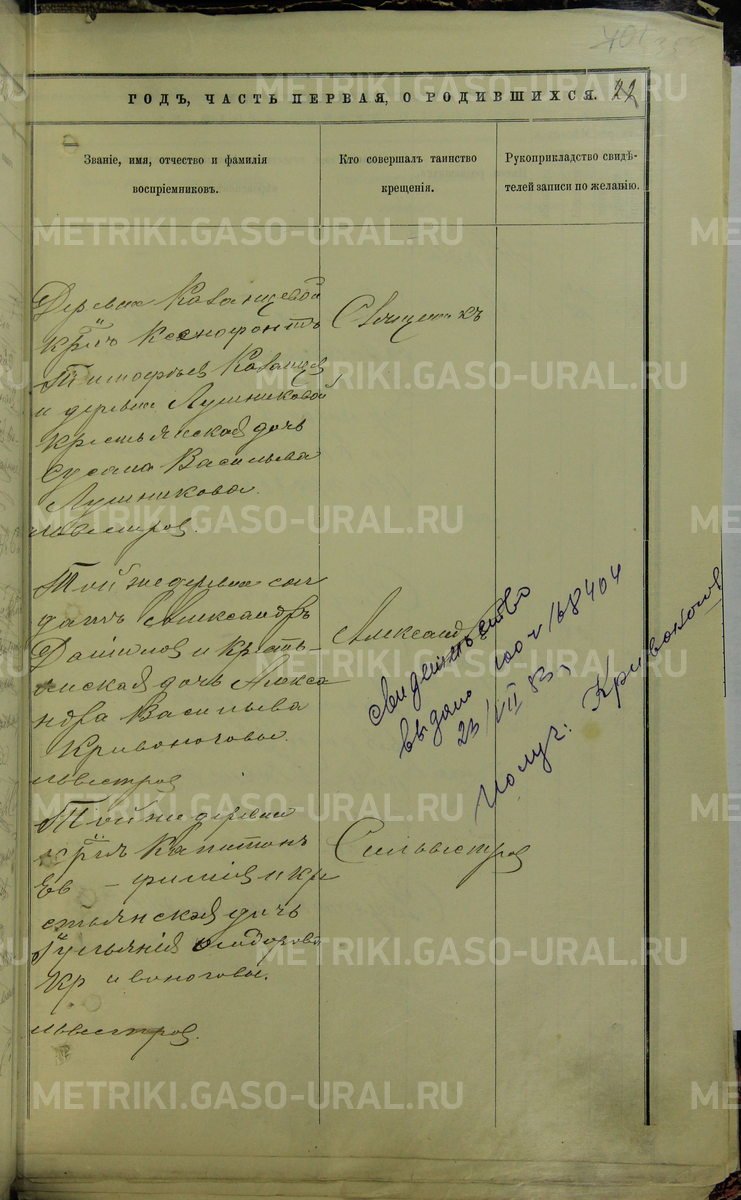 ГОДЪ, ЧАСТЬ ПЕРВАЯ, О РОДИВШИХСЯ. 22
Званіе, имя, отчество и фамилія
воспріемниковъ.
Кто совершалъ таинство
крещенія.
Рукоприкладство свидѣ-
телей записи по желанію.
Деревни Казанцевой
Ксенофонтъ
Тимофѣевъ Казанцев
и деревни Лушниковой
крестьянская дочь
Васильева
Лушникова.
Священникъ
Той же деревни сол
датъ Александръ
Даниловъ и крестья-
нская дочь Алекса
ндра Васильева
Кривоноговы.
Александ
свидетельство
выдано 168404
23/VII 53г
Получ. Кривоногов
Той же деревни
Капитонъ
Ев - фимовъ и кре
стьянская дочь
Іуліанія Ѳеодорова
Кр ивоноговы.
Сильвестров
METRIKI.GASO-URAL.RU